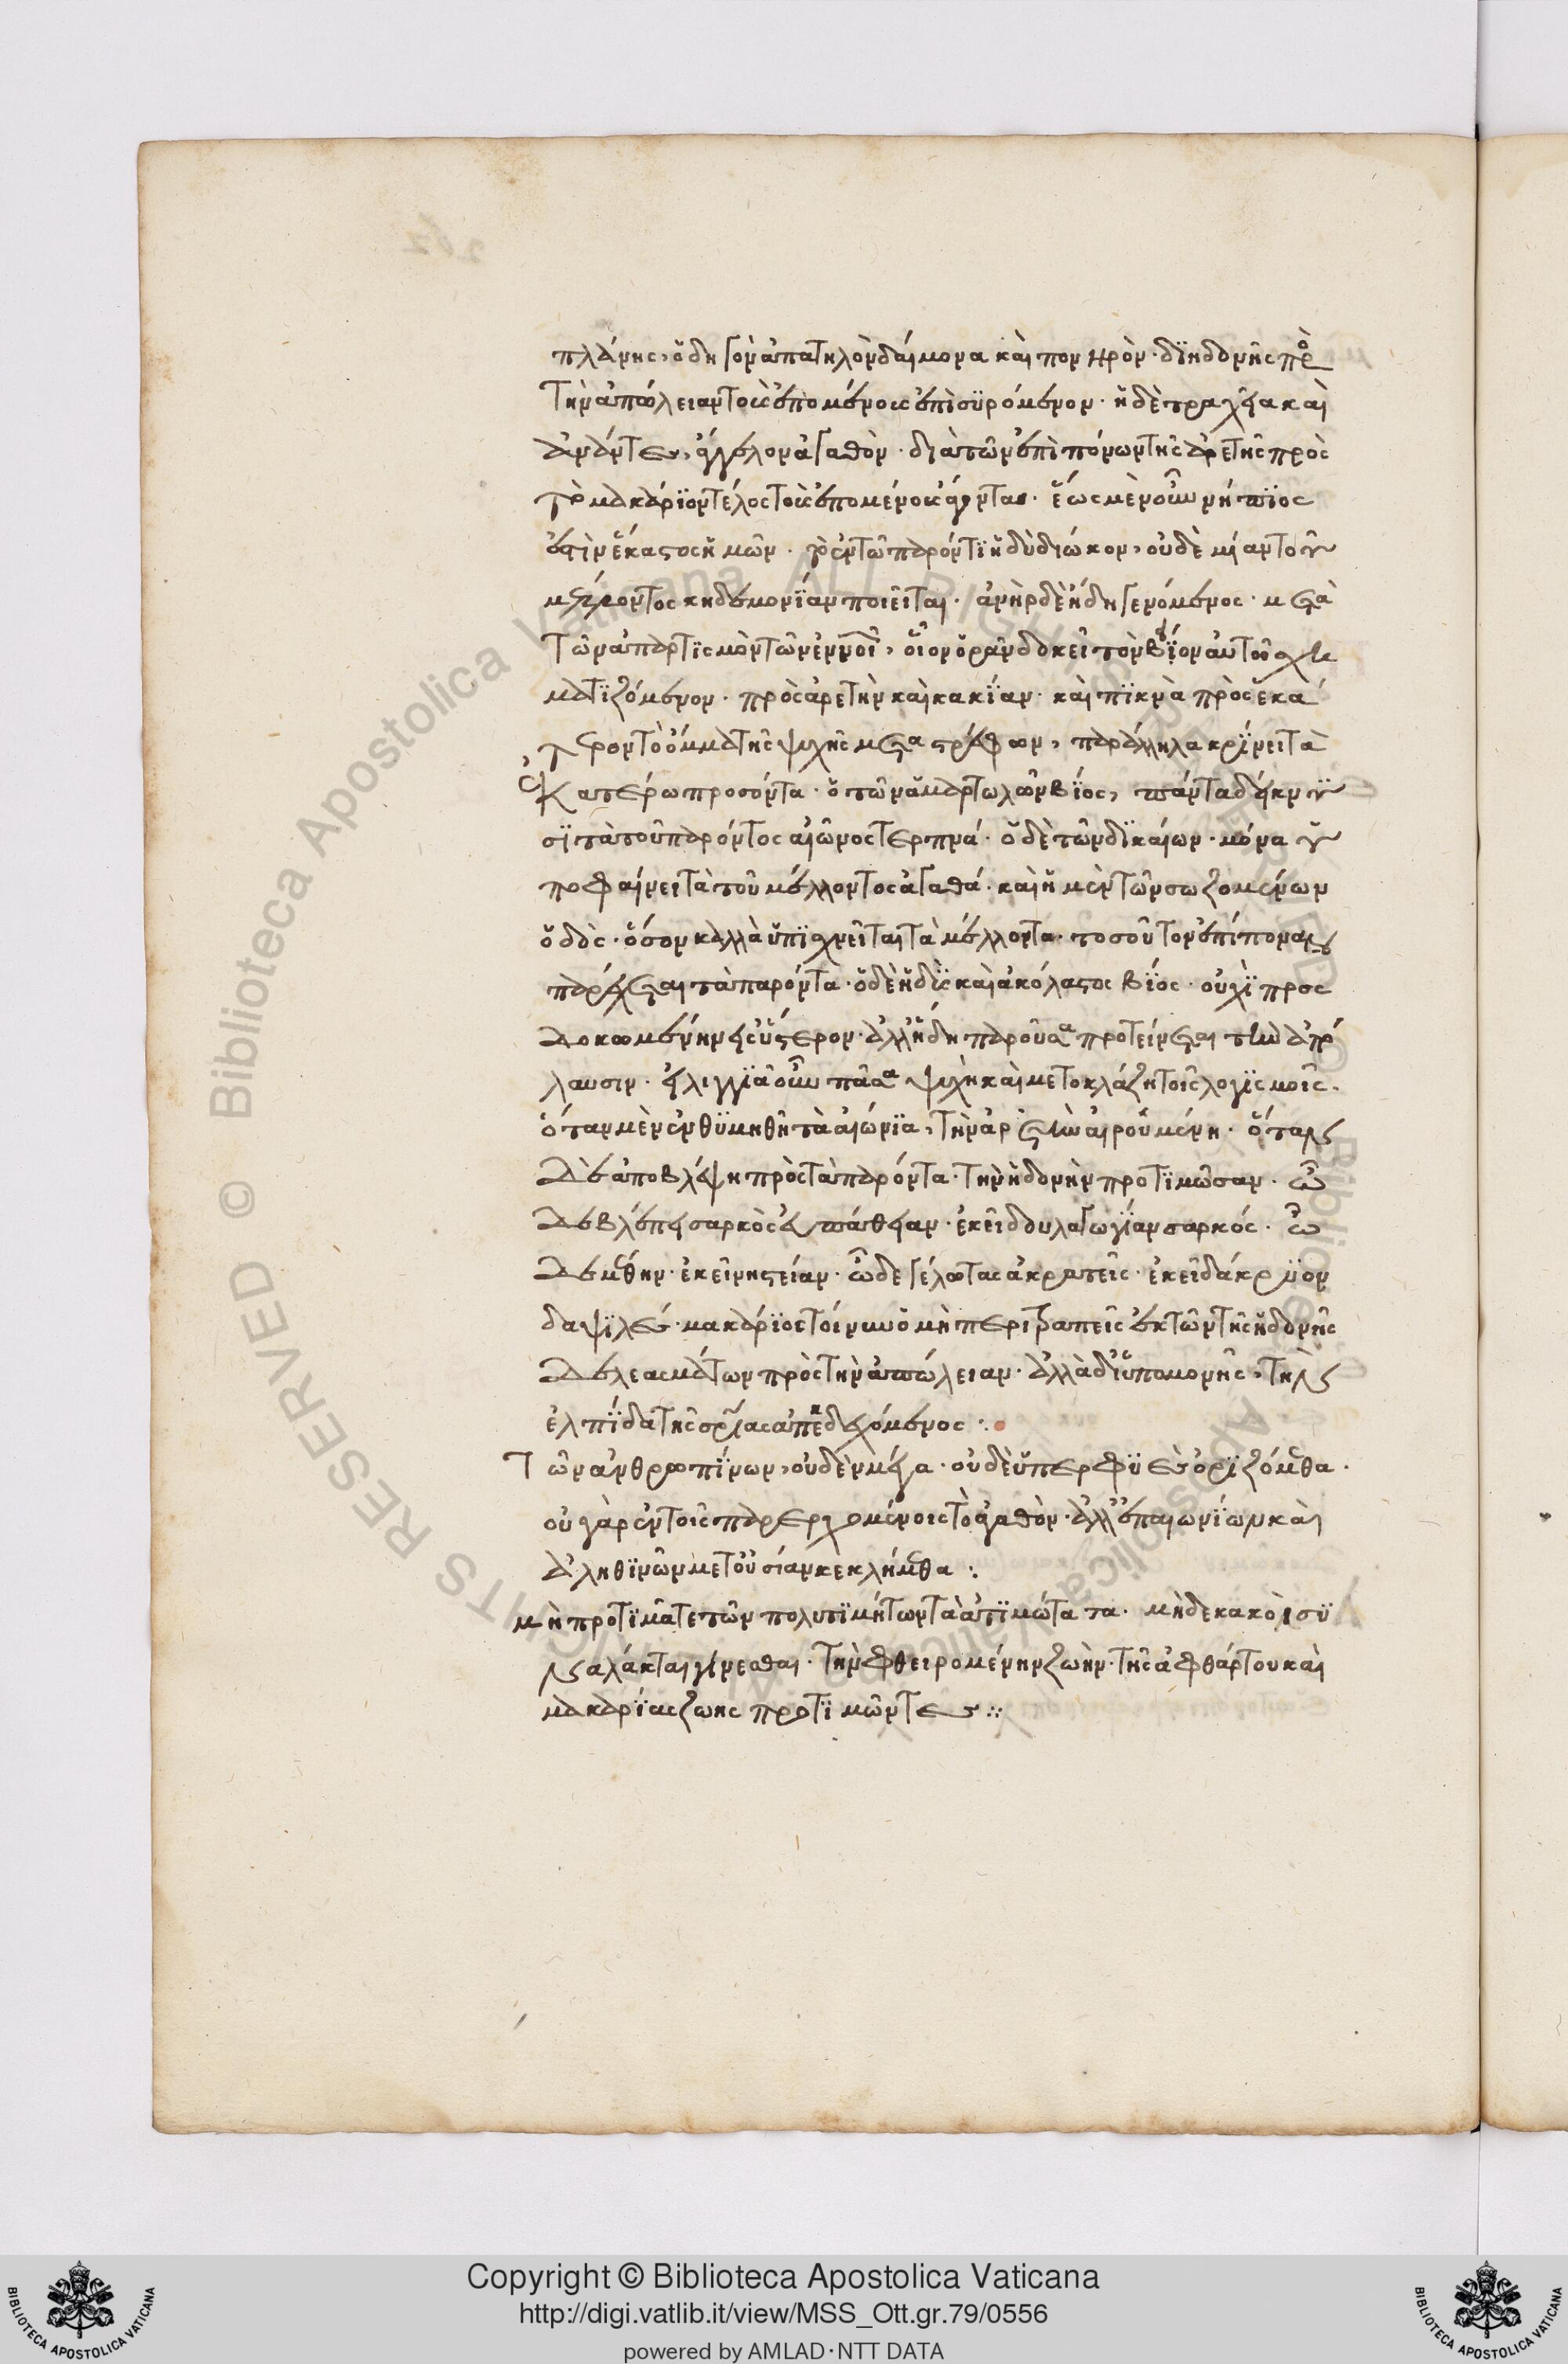 πλάνης, ὁδηγὸν ἀπατηλὸν δαίμονα καὶ πονηρὸν· δϊηδονῆς πρὸ
τὴν ἀπώλειαν τοὺς ἑπομένους ἐπισϋρόμενον· ἡ δὲ τραχεῖα καὶ
ἀνάντης, ἄγγελον ἀγαθὸν· διὰ τῶν ἐπιπόνων τῆς ἀρετῆς πρὸς
τὸ μακάρϊον τέλος τοὺς ἑπομένους ἄγοντα· ἕως μὲν οὖν νήπϊος
ἐστὶν ἕκαστος ἡμῶν· τὸ ἐν τῶ παρόντϊ ἡδὺ διώκων, οὐδὲ μίαν τοῦ
μέλλοντος κηδεμονΐαν ποιεῖται· ἀνὴρ δὲ ἤδη γενόμενος· μετὰ
τῶν ἀπαρτϊσμὸν τῶν ἐννοι, οἷον ὁρᾶν δοκεῖ τὸν βΐον αὐτοῦ σχη
ματϊζόμενον· πρὸς ἀρετὴν καὶ κακΐαν· καὶ πϊκνὰ πρὸς ἑκά
τερον τὸ ὄμμα τῆς ψυχῆς μεταστρέφων, παράλληλα κρΐνει τὰ
ἑκατέρω προσόντα· ὁ τῶν ἁμαρτωλῶν βΐος, πάντα δείκνυ
σϊ τὰ τοῦ παρόντος αἰῶνος τερπνά· ὁ δὲ τῶν δϊκαίων· μόνα ὑ
ποφαίνει τὰ τοῦ μέλλοντος ἀγαθά· καὶ ἡ μὲν τῶν σωζομένων
ὁδὸς· ὅσον καλλὰ ὑπϊσχνεῖται τὰ μέλλοντα· τοσοῦτον ἐπίπονα
παρέχεται τὰ παρόντα· ὁ δὲ ἡδὺς καὶ ἀκόλαστος βΐος· οὐχΐ προσ
δοκωμένην εἰς ὕστερον· ἀλλ' ἤδη παροῦσα προτείνεται τὴν ἀπό
λαυσιν· εἰλιγγϊᾶ οὖν πᾶσα ψυχὴ καὶ μετοκλάζη τοῖς λογϊσμοῖς·
ὅταν μὲν ἐνθϋμηθῆ τὰ αἰώνϊα, τὴν ἀρετὴν αἱρουμένη· ὅταν
δὲ ἀποβλέψη πρὸς τὰ παρόντα· τὴν ἡδονὴν προτϊμῶσαν· ὧ
δε βλέπει σαρκὸς εὐπάθειαν· ἐκεῖ δουλαγωγΐαν σαρκός· ὧ
δε μέθην· ἐκεῖ νηστείαν· ὧδε γέλωτας ἀκρατεῖς· ἐκεῖ δάκρϋον
δαψϊλές· μακάρϊος τοίνυν ὁ μὴ περιτραπεὶς ἐκ τῶν τῆς ἡδονῆς
δελεασμάτων πρὸς τὴν ἀπώλειαν· ἀλλὰ δι' ὑπομονῆς, τὴν
ἐλπΐδα τῆς σρΐας ἀπεκδεχόμενος :·
Τῶν ἀνθρωπΐνων, οὐδὲν μέγα· οὐδὲ ὑπερφϋὲς ὁρϊζόμεθα·
οὐ γὰρ ἐν τοῖς παρερχομένοις τὸ ἀγαθὸν· ἀλλ' ἐπ' αἰωνΐων καὶ
ἀληθϊνῶν μετουσίαν κεκλήμεθα :·
μὴ προτϊμᾶτε τῶν πολυτϊμήτων τὰ ἀτϊμώτατα· μὴδε κακοὶ σϋ
ναλάκται γίνεσθαι· τὴν φθειρομένην ζωὴν· τῆς ἀφθάρτου καὶ
μακαρΐας ζωῆς προτϊμῶντες :·
Copyright © Biblioteca Apostolica Vaticana
http://digi.vatlib.it/view/MSS_Ott.gr.79/0556
powered by AMLAD·NTT DATA